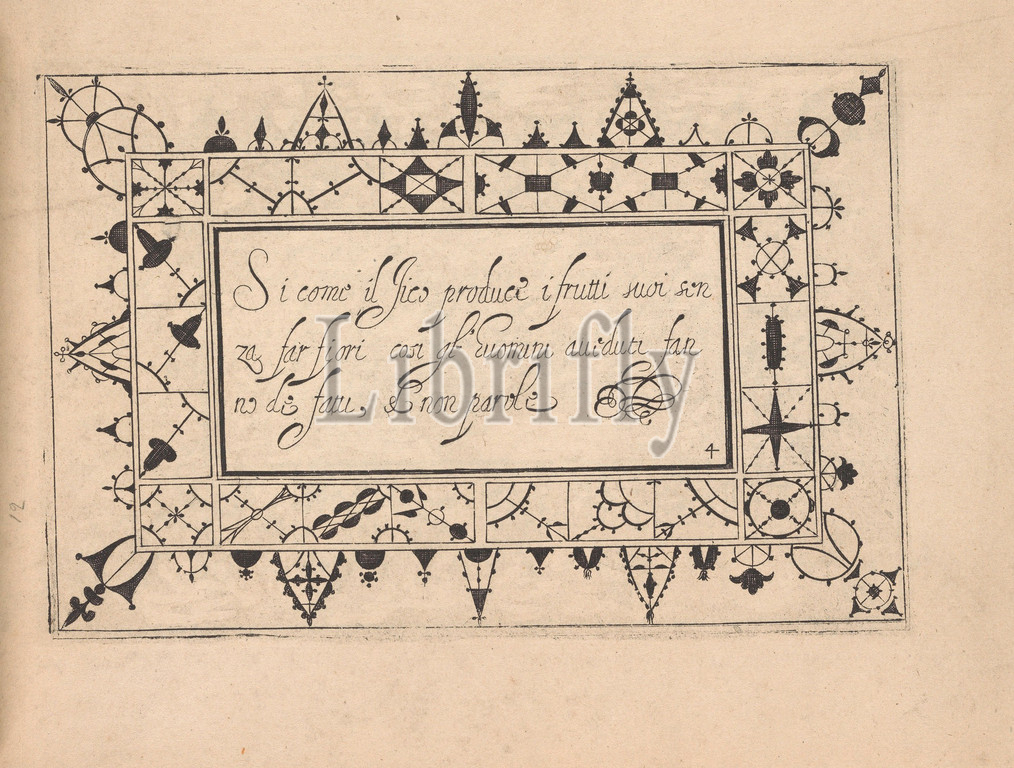 Si come il fico produce i frutti suoi sen
za far fiori cosi gl'huomini aueduti fan
no de fatti, & non parole
4
Librifly
12